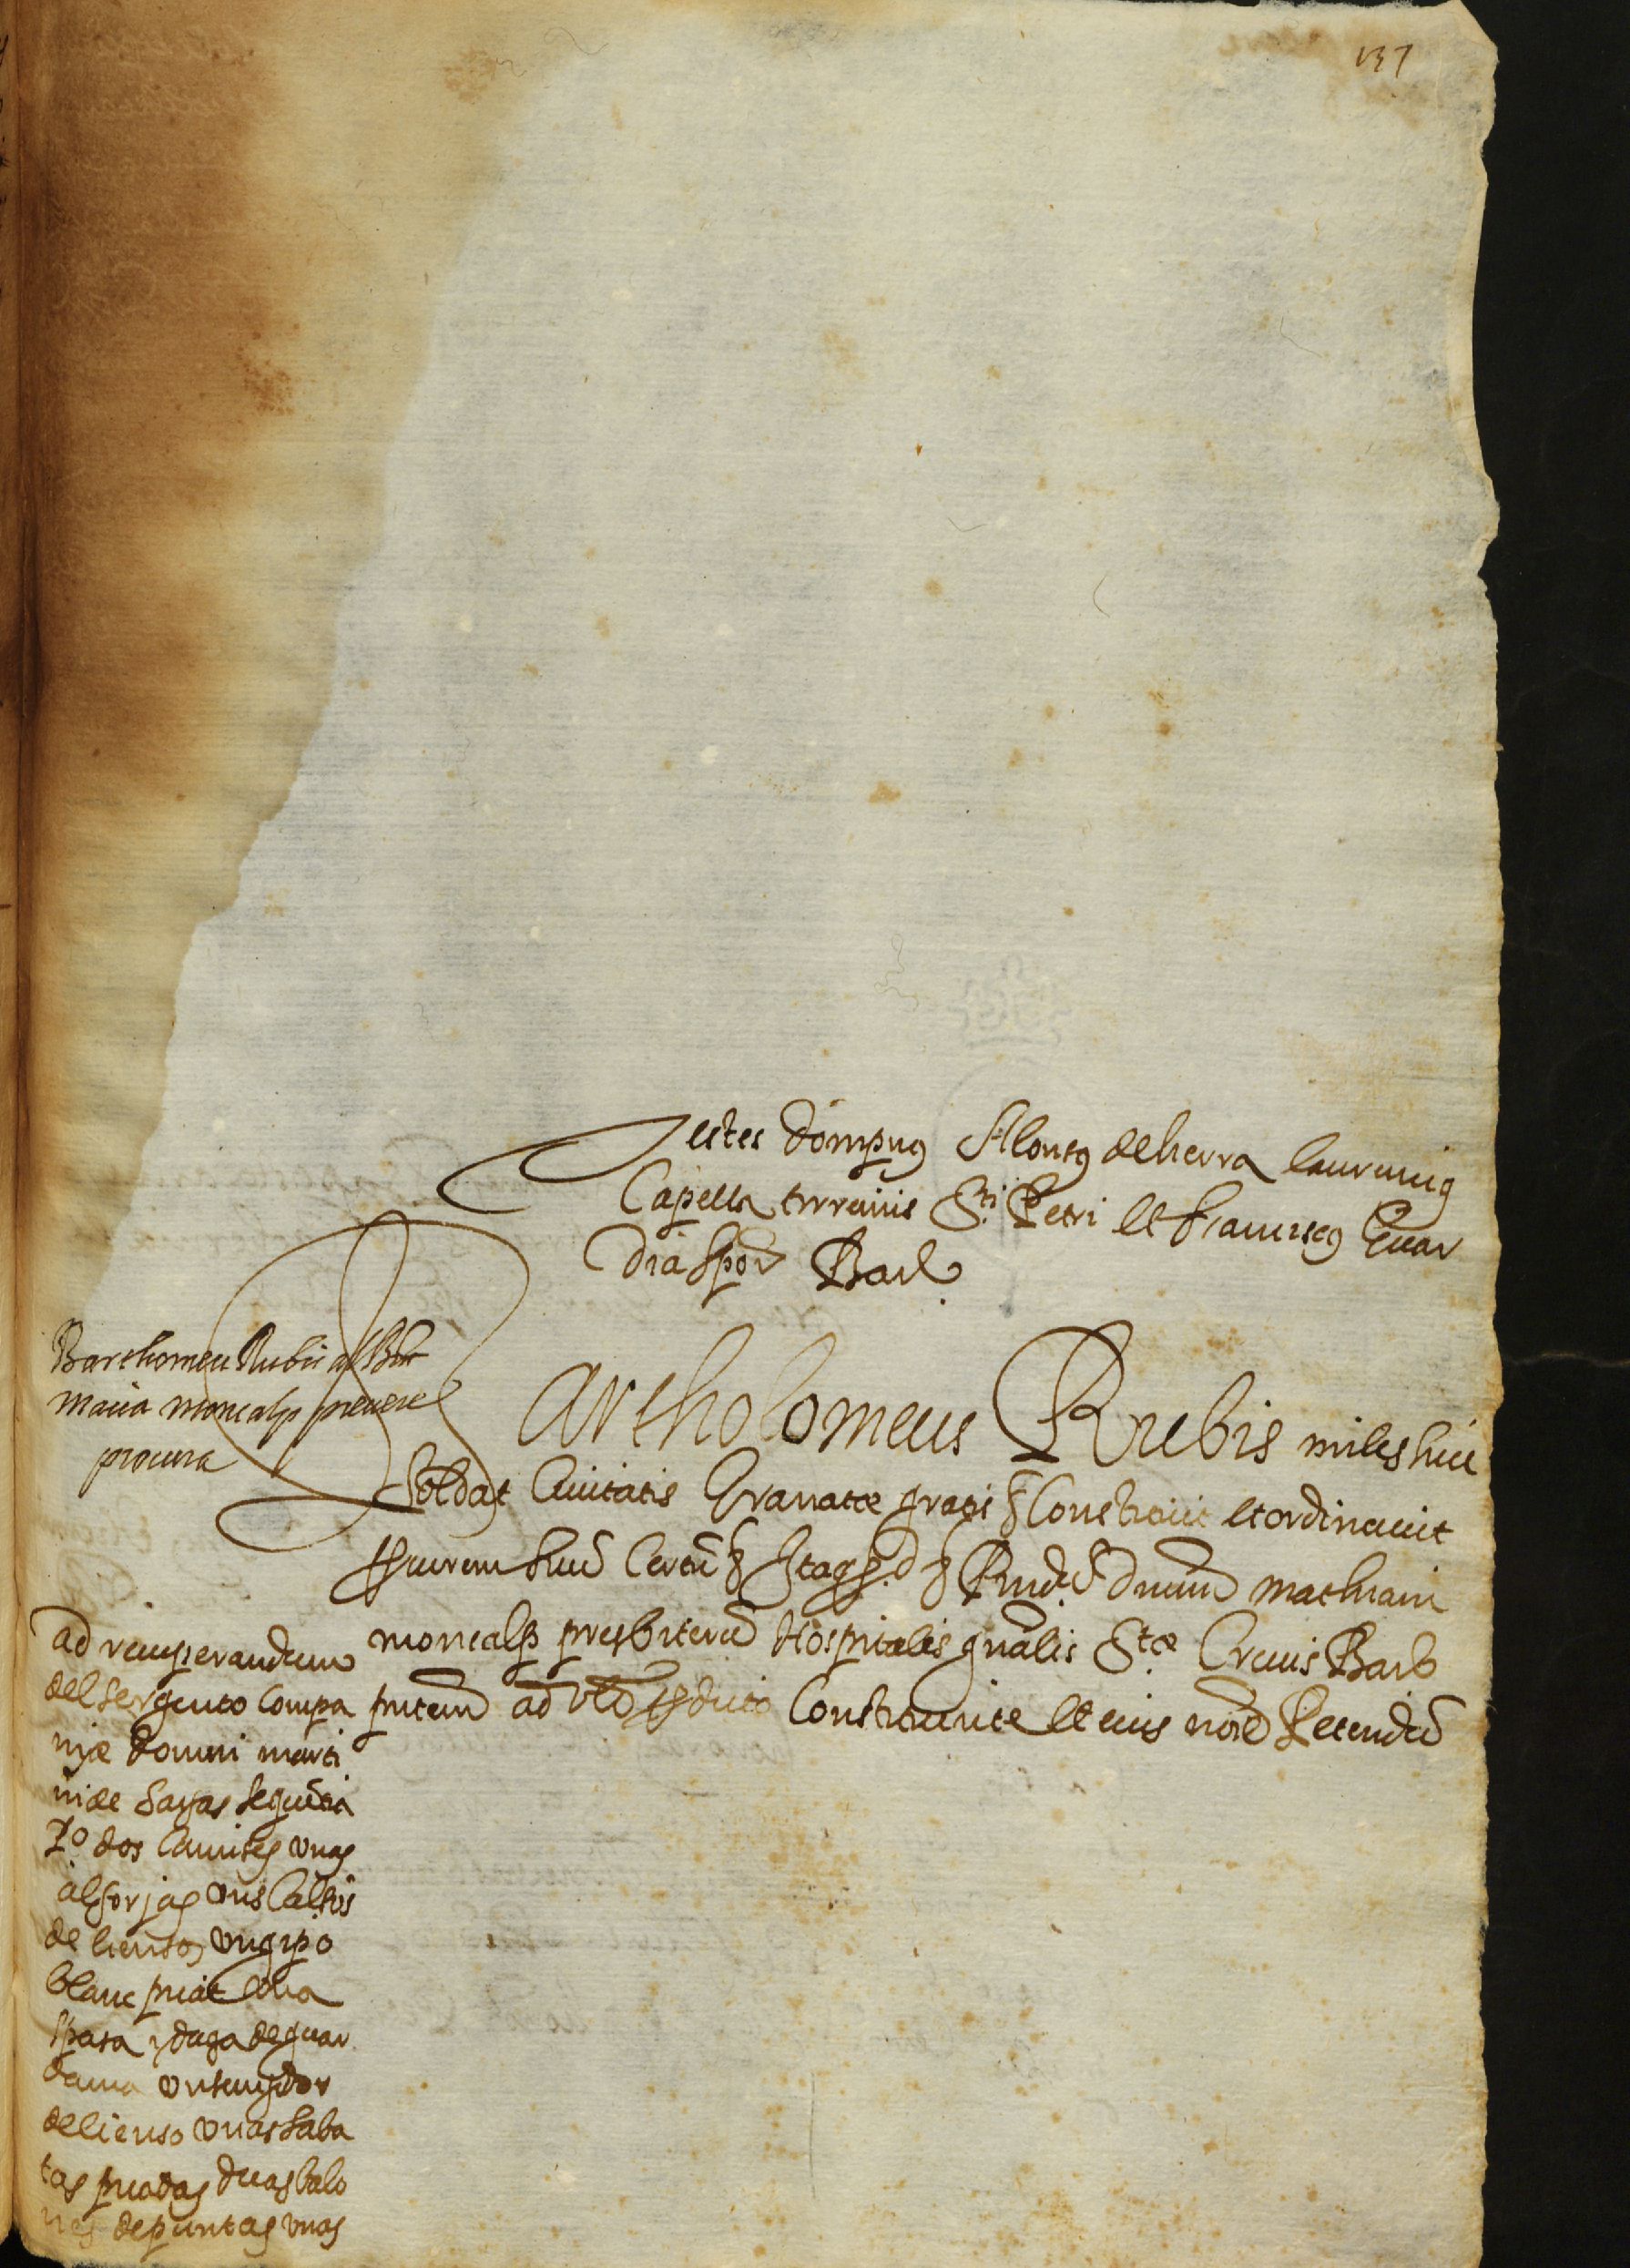 137
Testes dompnus Alonsus de herra laurencius
Capella torrarius Sti Petri et franciscus Guar
dia Barne
Bartholomeu Rubis al Rnt
Macia moncalp prevere
procura
Bartholomeus Rubis miles sive
Soldat Civitatis Granatæ gratis & Constituit et ordinavit
procurem suum Certum & Rndum dnum Mathiam
moncalp presbiterum Hospitalis gnalis Stæ Crucis Barne
pntem ad Constituente et eius noie Petendum
ad recuperandum
del sergento compa
niæ domni marti
ni de Sayas sequentia
Po dos Camises unas
alforjas uns Calsos
de lienso, un gipo
blanc picat una
spasa y daga de guar
de lienso unas saba
tas picadas duas valo
nes de puntas unas